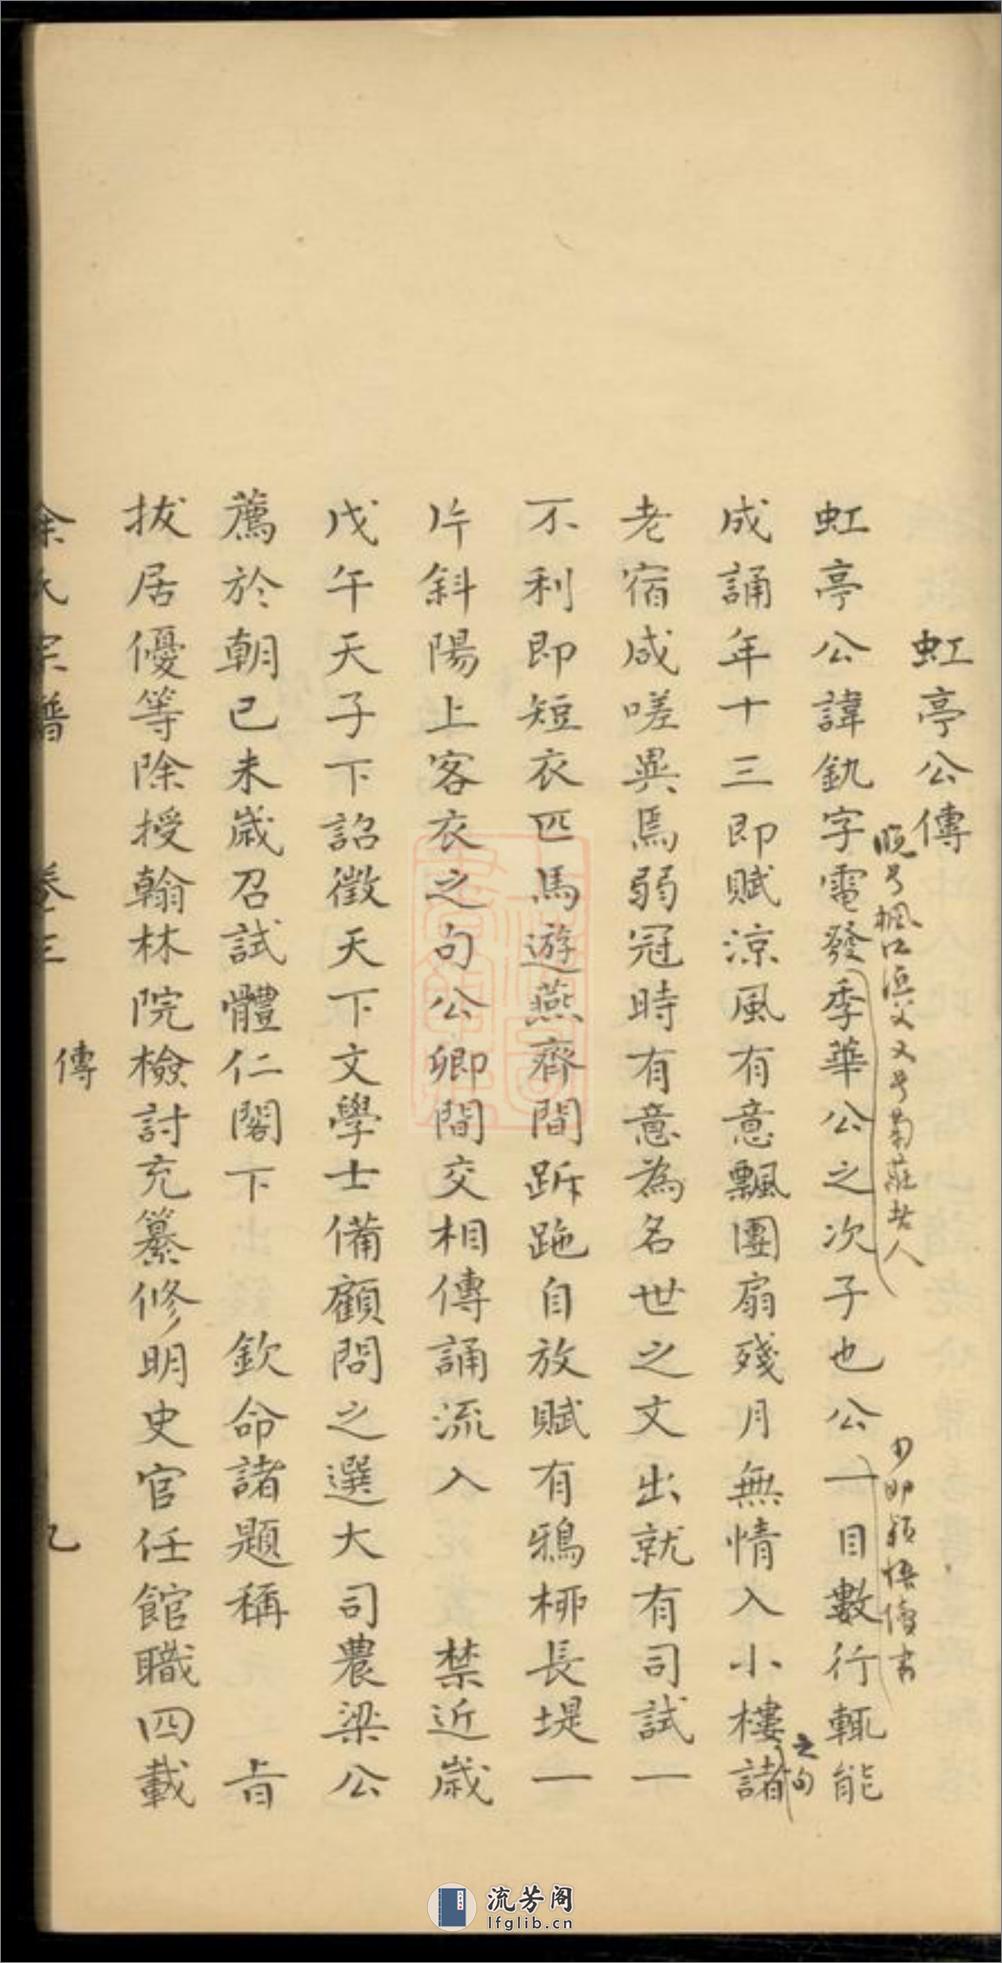 虹亭公傳
虹亭公諱釚字電發季華公之次子也公一目數行輒能
晚号楓江漁父又号菊莊老人
少卽穎悟讀書
成誦年十三即賦涼風有意飄團扇殘月無情入小樓諸
之句
老宿咸嗟異焉弱冠時有意為名世之文出就有司試一
不利即短衣匹馬遊燕齊間跅跪自放賦有鴉桺長堤一
片斜陽上客衣之句公卿間交相傳誦流入 禁近歲
戊午天子下詔徵天下文學士備顧問之選大司農梁公
薦於朝已未歲召試體仁閣下 欽命諸題稱 旨
拔居優等除授翰林院檢討充纂修明史官任館職四載
徐氏宗譜 卷三 傳 九
流芳阁
lfglib.cn